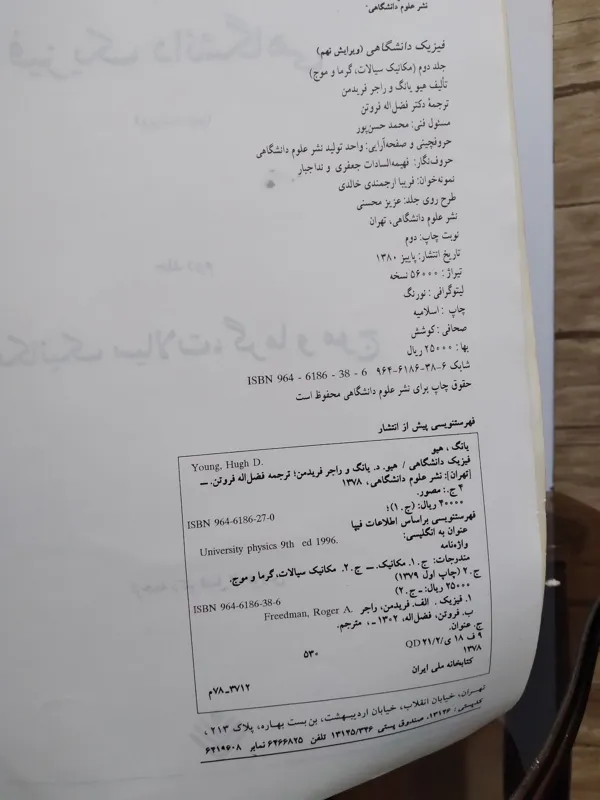 نشر علوم دانشگاهی.
فیزیک دانشگاهی (ویرایش نهم)
جلد دوم (مکانیک سیالات، گرما و موج)
تألیف هیو یانگ و راجر فریدمن
ترجمهٔ دکتر فضل‌اله فروتن
مسئول فنی: محمد حسن‌پور
حروفچینی و صفحه‌آرایی: واحد تولید نشر علوم دانشگاهی
حروف‌نگار: فهیمه‌السادات جعفری و نداجبار
نمونه‌خوان: فریبا ارجمندی خالدی
طرح روی جلد: عزیز محسنی
نشر علوم دانشگاهی، تهران
نوبت چاپ: دوم
تاریخ انتشار: پاییز ۱۳۸۰
تیراژ: ۵۶۰۰۰ نسخه
لیتوگرافی: نورنگ
چاپ: اسلامیه
صحافی: کوشش
بها: ۲۵۰۰۰ ریال
شابک ۶-۳۸-۶۱۸۶-۹۶۴ ISBN 964 - 6186 - 38 - 6
حقوق چاپ برای نشر علوم دانشگاهی محفوظ است
فهرستنویسی پیش از انتشار
یانگ، هیو Young, Hugh D.
فیزیک دانشگاهی / هیو. د. یانگ و راجر فریدمن؛ ترجمه فضل‌اله فروتن. ــ
[تهران]: نشر علوم دانشگاهی، ۱۳۷۸
۴ ج.: مصور.
۴۰۰۰۰ ریال: (ج. ۱)؛ ISBN 964-6186-27-0
فهرستنویسی براساس اطلاعات فیپا
عنوان به انگلیسی: University physics 9th ed 1996.
واژه‌نامه
مندرجات: ج. ۱. مکانیک. ــ ج. ۲. مکانیک سیالات، گرما و موج.
ج. ۲ (چاپ اول ۱۳۷۹)
۲۵۰۰۰ ریال: ــ ج. ۲) ISBN 964-6186-38-6
۱. فیزیک. الف. فریدمن، راجر Freedman, Roger A.
ب. فروتن، فضل‌اله، ۱۳۰۲ ــ ، مترجم.
ج. عنوان.
۹ ف ۱۸ ی/۲۱/۲ QD ۵۳۰
۱۳۷۸
کتابخانه ملی ایران ۳۷۱۲ــ۷۸م
تهران، خیابان انقلاب، خیابان اردیبهشت، بن‌بست بهاره، پلاک ۲۱۳،
کدپستی: ۱۳۱۴۶، صندوق پستی ۱۳۱۴۵/۳۴۶ تلفن ۶۴۶۶۸۲۵ نمابر ۶۴۱۹۶۰۸